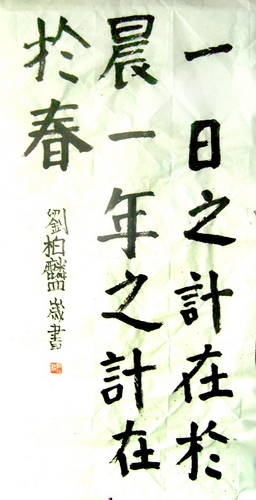 一日之計在於
晨一年之計在
於春
劉柏麟四歲書